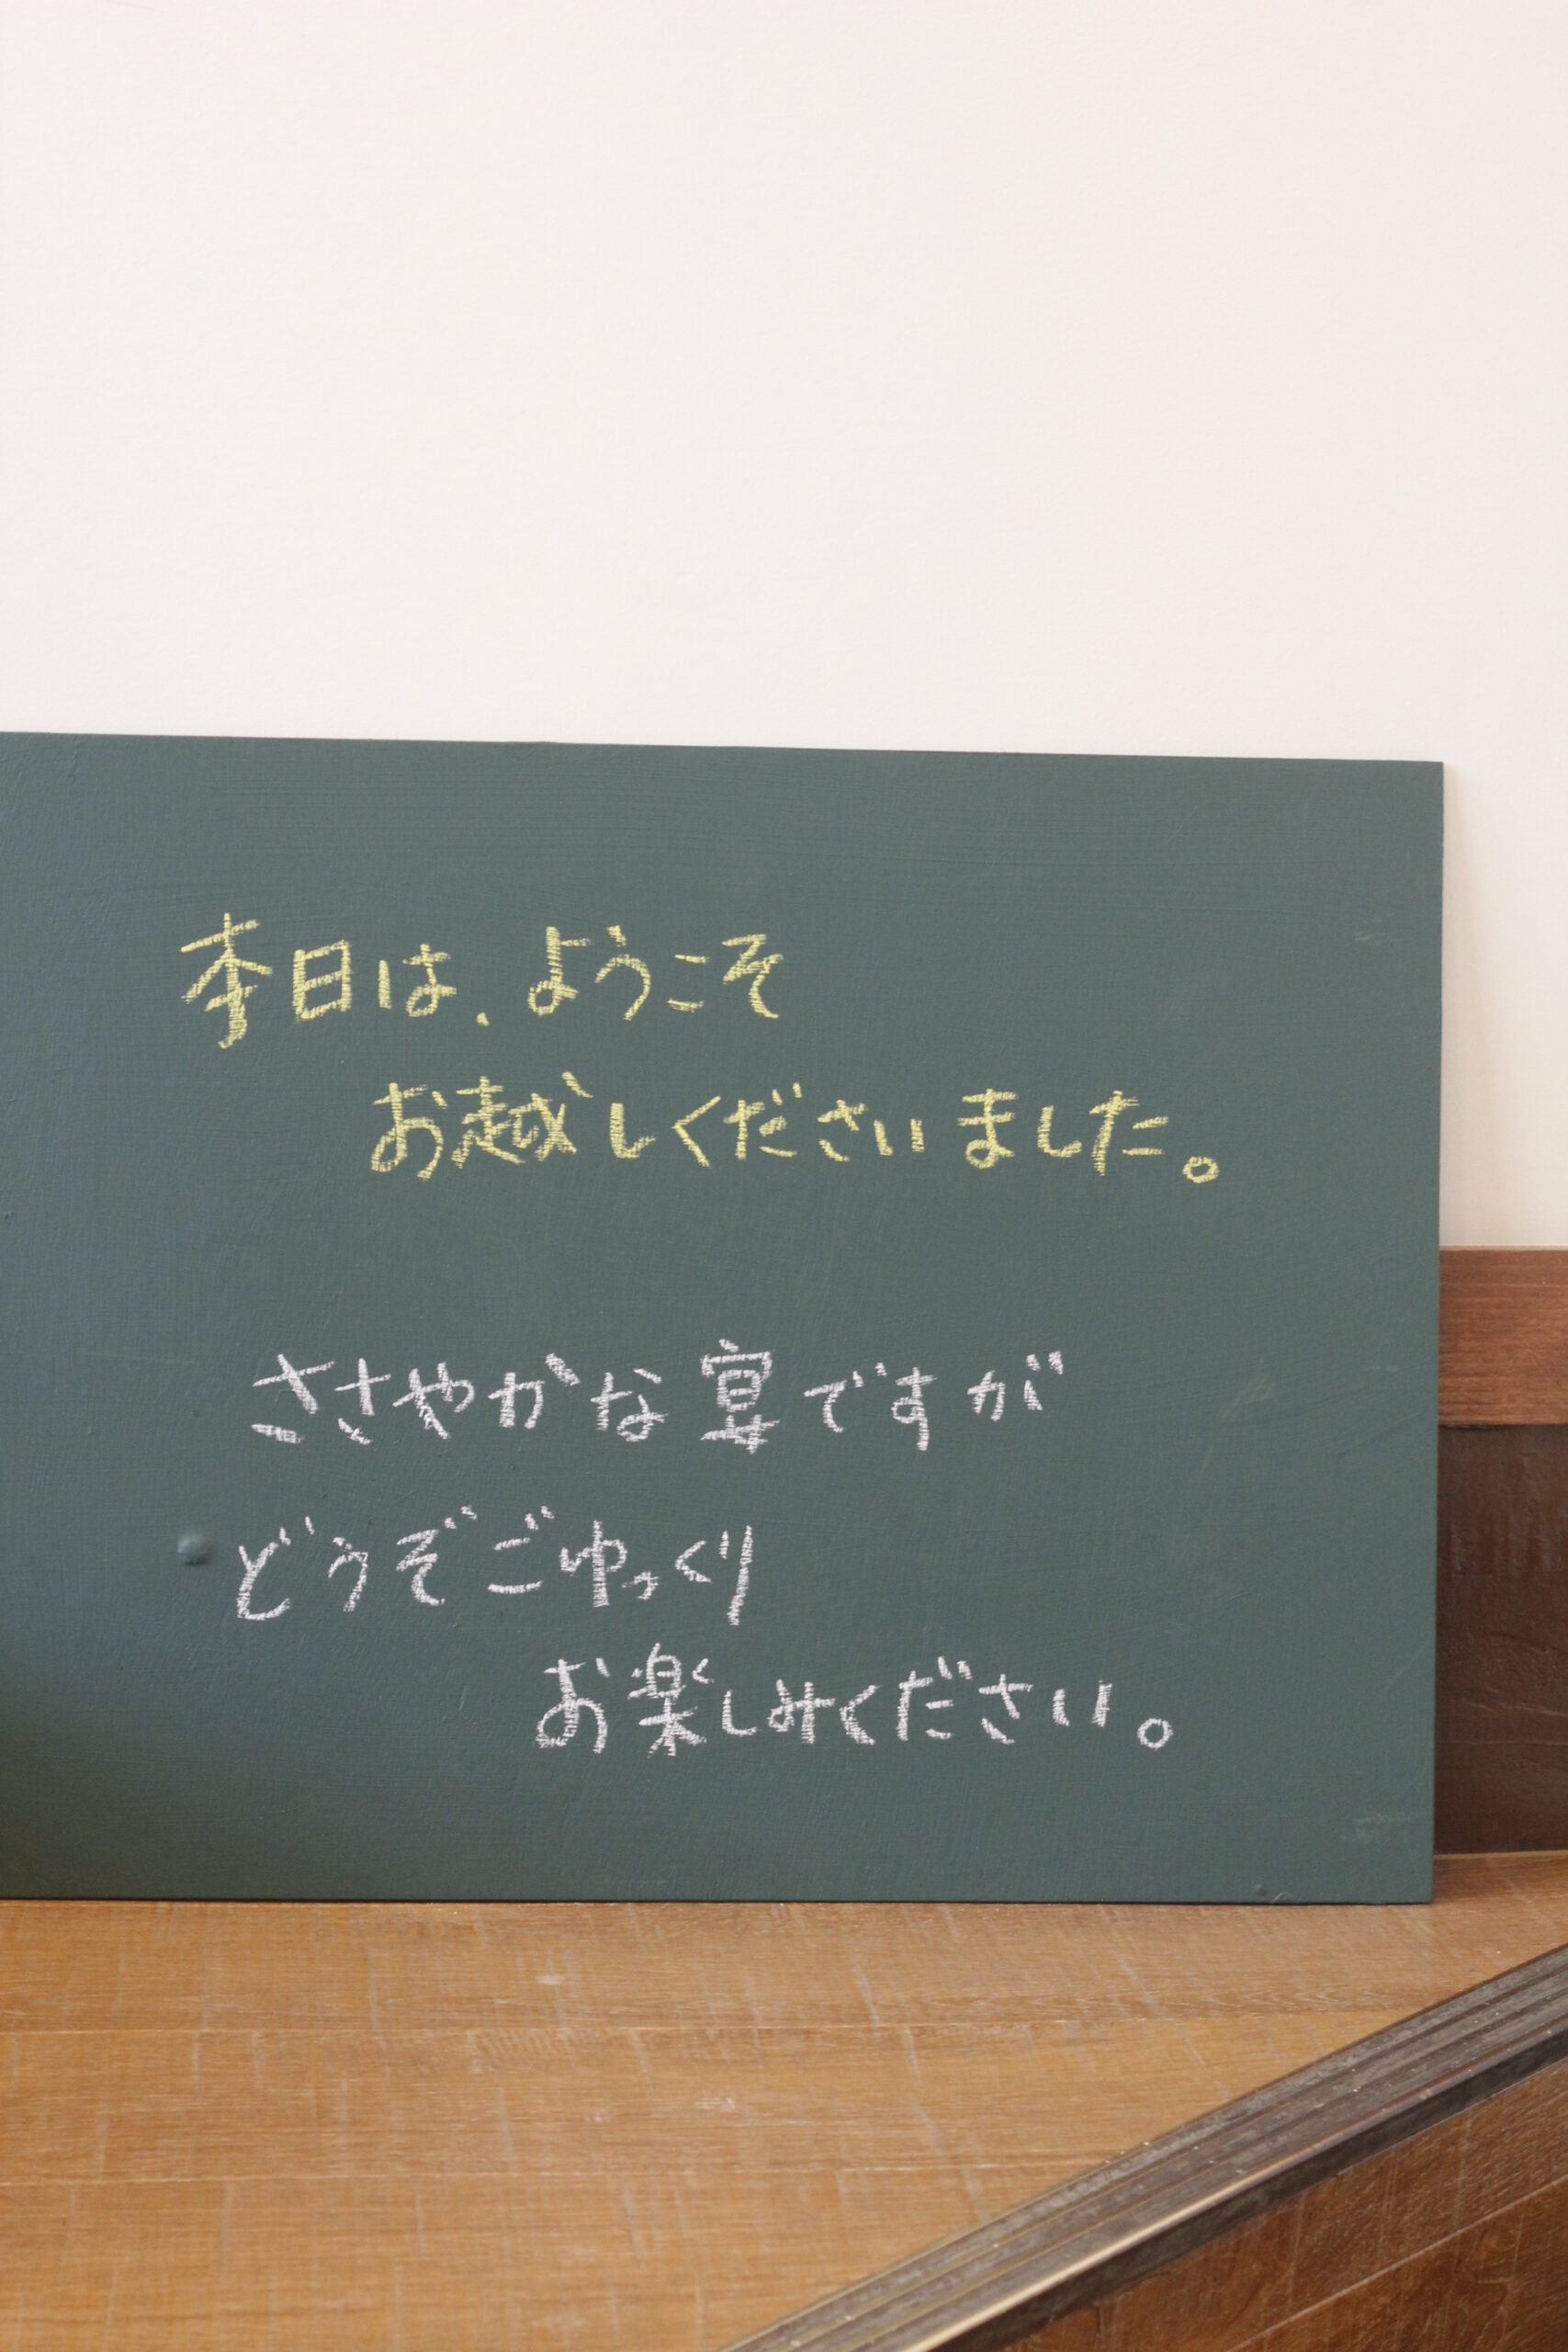 本日は、ようこそ
お越しくださいました。
ささやかな宴ですが
どうぞごゆっくり
お楽しみください。